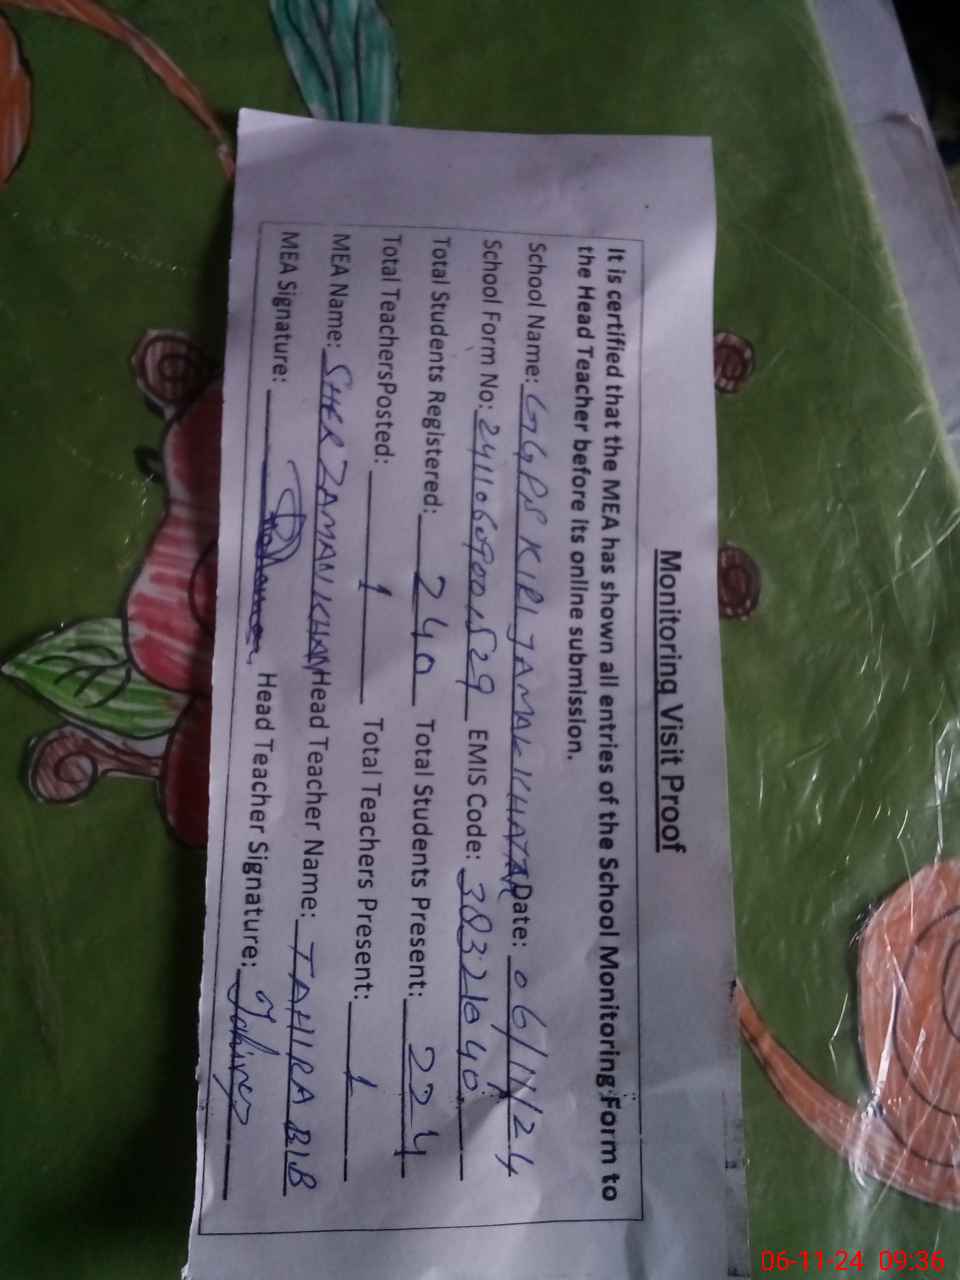 Monitoring Visit Proof
It is certified that the MEA has shown all entries of the School Monitoring Form to
the Head Teacher before its online submission.
School Name: GGPS KIRI JAMAL KHATAK Date: 06/11/24
School Form No: EMIS Code:
Total Students Registered: 240 Total Students Present: 224
Total TeachersPosted: 1 Total Teachers Present: 1
MEA Name: SHER ZAMAN KHAN Head Teacher Name: TAHIRA BIB
MEA Signature: Head Teacher Signature: Tahira
06-11-24 09:36